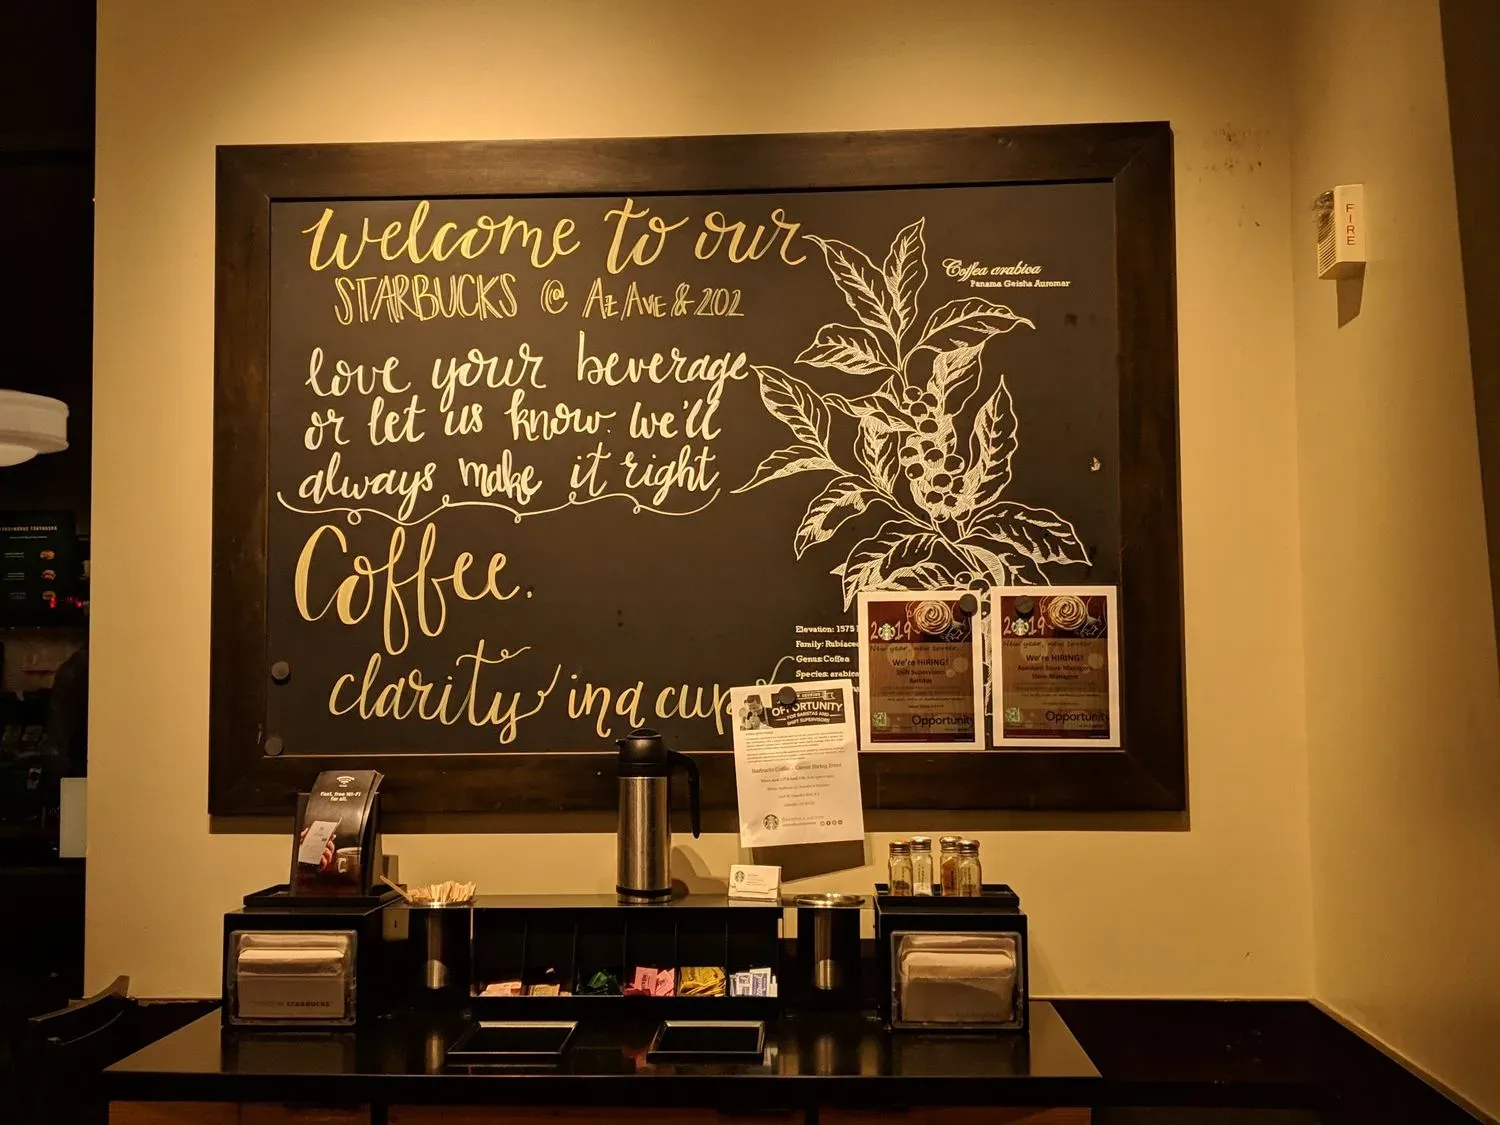 welcome to our
STARBUCKS @ AZ AVE & 202
love your beverage
or let us know. we'll
always make it right
Coffee.
clarity in a cup
Coffea arabica
Panama Geisha Auromar
Elevation: 1575
Family: Rubiacea
Genus: Coffea
Species: arabica
2019
New year, new career...
We're HIRING!
Shift Supervisors
Baristas
Opportunity
2019
New year, new career...
We're HIRING!
Assistant Store Managers
Store Managers
Opportunity
OPPORTUNITY
FOR BARISTAS AND
SHIFT SUPERVISORS
Starbucks Coffee - Career Hiring Event
FIRE
Fast, free Wi-Fi
for all.
STARBUCKS